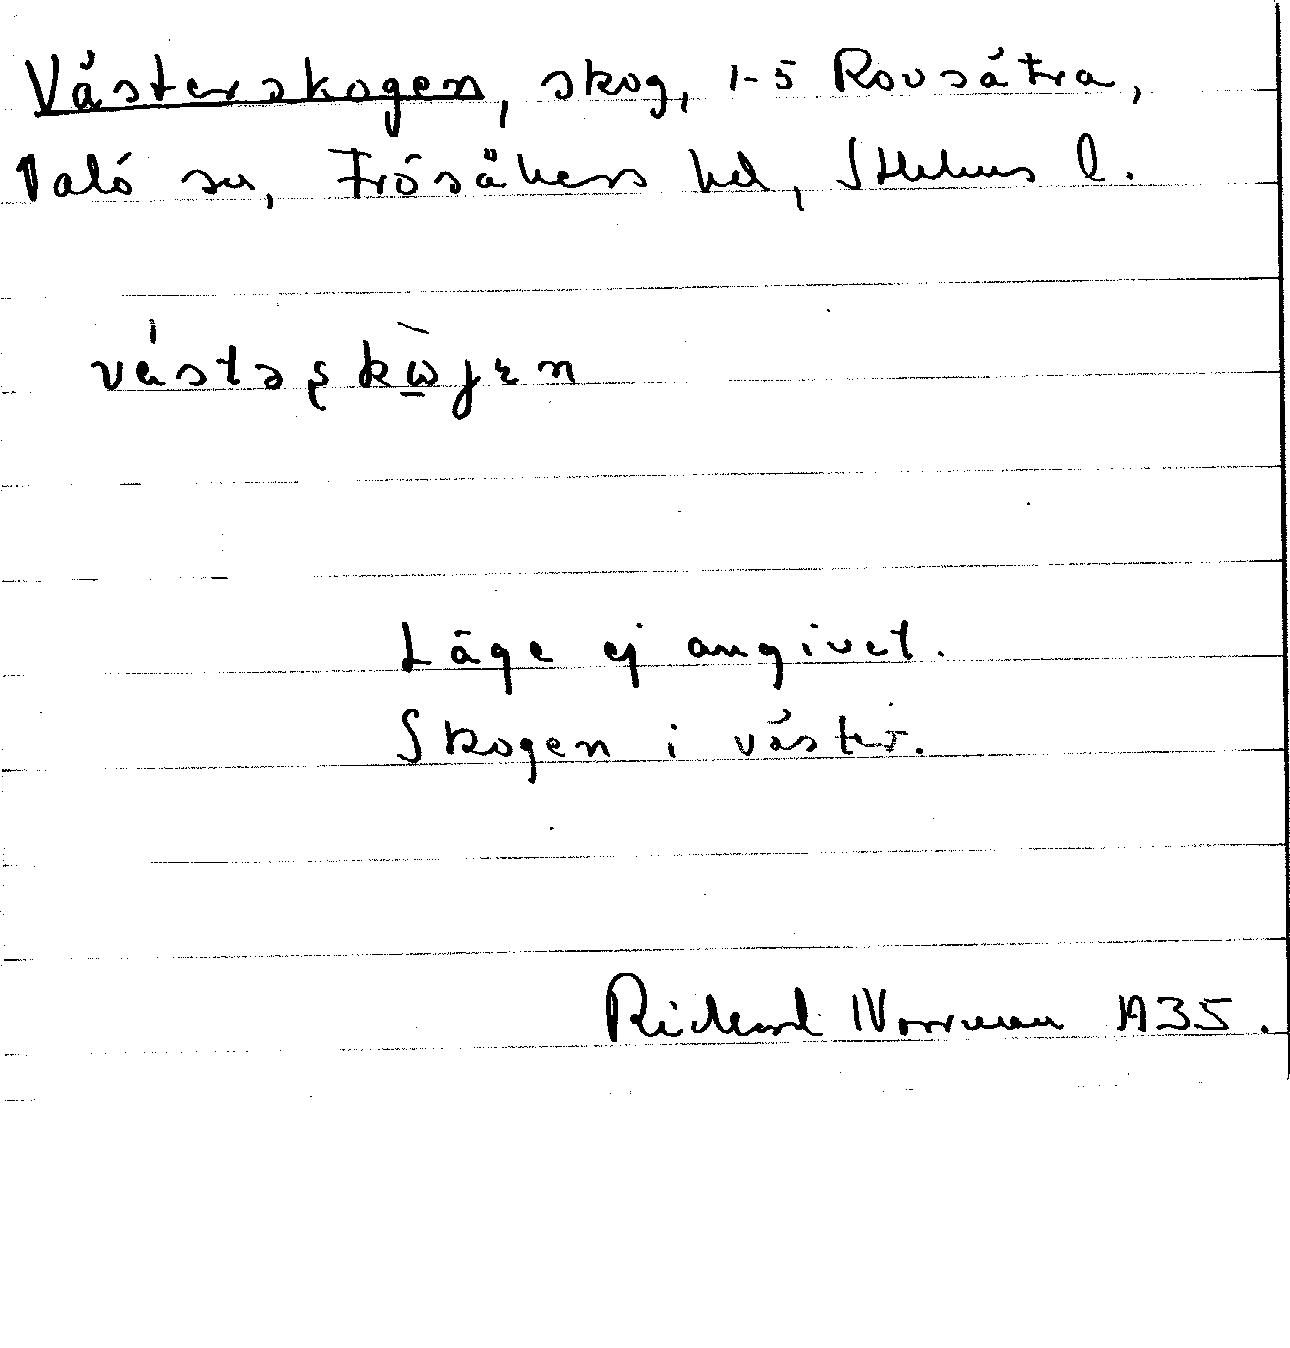 Västerskogen, skog, 1-5 Rovsätra,
Valö sn, Frösåkers hd, Sthlms l.
Läge ej angivet.
Skogen i väster.
Rickard Norrman 1935.